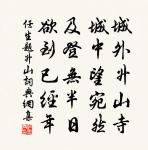 城外升山寺
城中望宛然
及登無半日
欲到已經年
任生題升山詞典網集